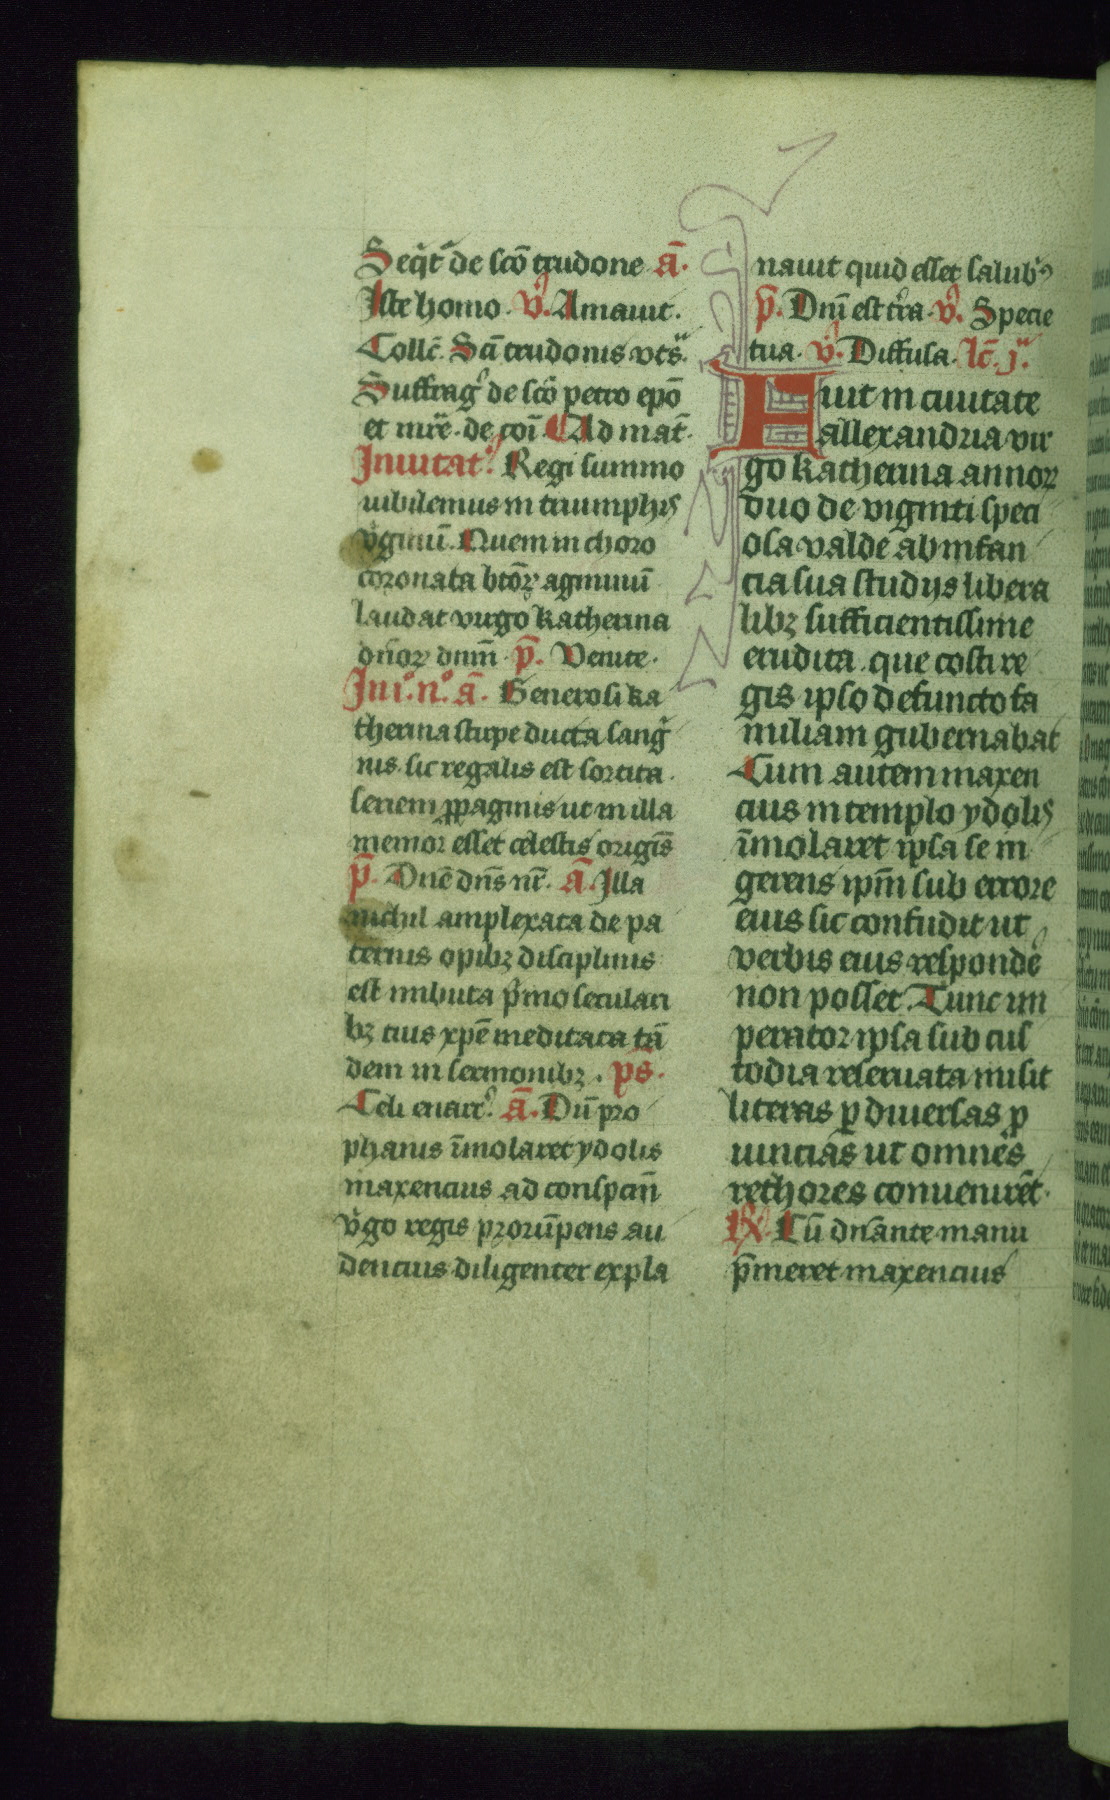 Seqͥt᷑ de sco̅ trudone a̅.
Iste homo. v̓. Amauit.
Collc̅. Sci̅ trudonis vts᷑.
Suffrag᷑ de sco̅ petro epo̅
et mr̅e. de coi̅. Ad mat̅.
Inuitat᷑. Regi summo
iubilemus in triumphis
vͥginu̅. Quem in choro
coronata bto̅ꝝ agminu̅
laudat virgo katherina
dn̅oꝝ dnm̅. p̅. Venite.
In i.º n.º a̅. Generosi ka
therina stirpe ducta sangͥ
nis. sic regalis est sortita.
seriem ꝓpaginis ut in illa
memor esset celestis origis̅
p̅. Dn̅e dn̅s nr̅. a̅. Illa
nichil amplexata de pa
ternis opibꝫ disciplinis
est imbuta pͥmo seculari
bꝫ eius xpe̅ meditata ta̅
dem in sermonibꝫ. ps̅.
Celi enarr᷑. a̅. Du̅ pro
phanis i̅molaret ydolis
maxencius ad conspcin̅
vͥgo regis proru̅pens au
dencius diligenter expla
nauit quid esset salubꝰ
p̅. Dni̅ est tr̅a. v̓. Specie
tua. v̓. Diffusa. lc̅. j.ᵃ
Fuit in ciuitate
allexandria vir
go katherina annoꝝ
duo de viginti speci
osa valde ab infan
cia sua studijs libera
libꝫ sufficientissime
erudita. que costi re
gis ipso defuncto fa
miliam gubernabat
Cum autem maxen
cius in templo ydolis
i̅molaret ipsa se in
gerens ipm̅ sub errore
eius sic confudit ut
verbis eius responde᷑
non posset. Tunc im
perator ipsa sub cus
todia reseruata misit
literas ꝑ diuersas ꝓ
uincias ut omnes
rethores conuenire̅t.
℟. Cu̅ dn̅ante manu
p̅meret maxencius